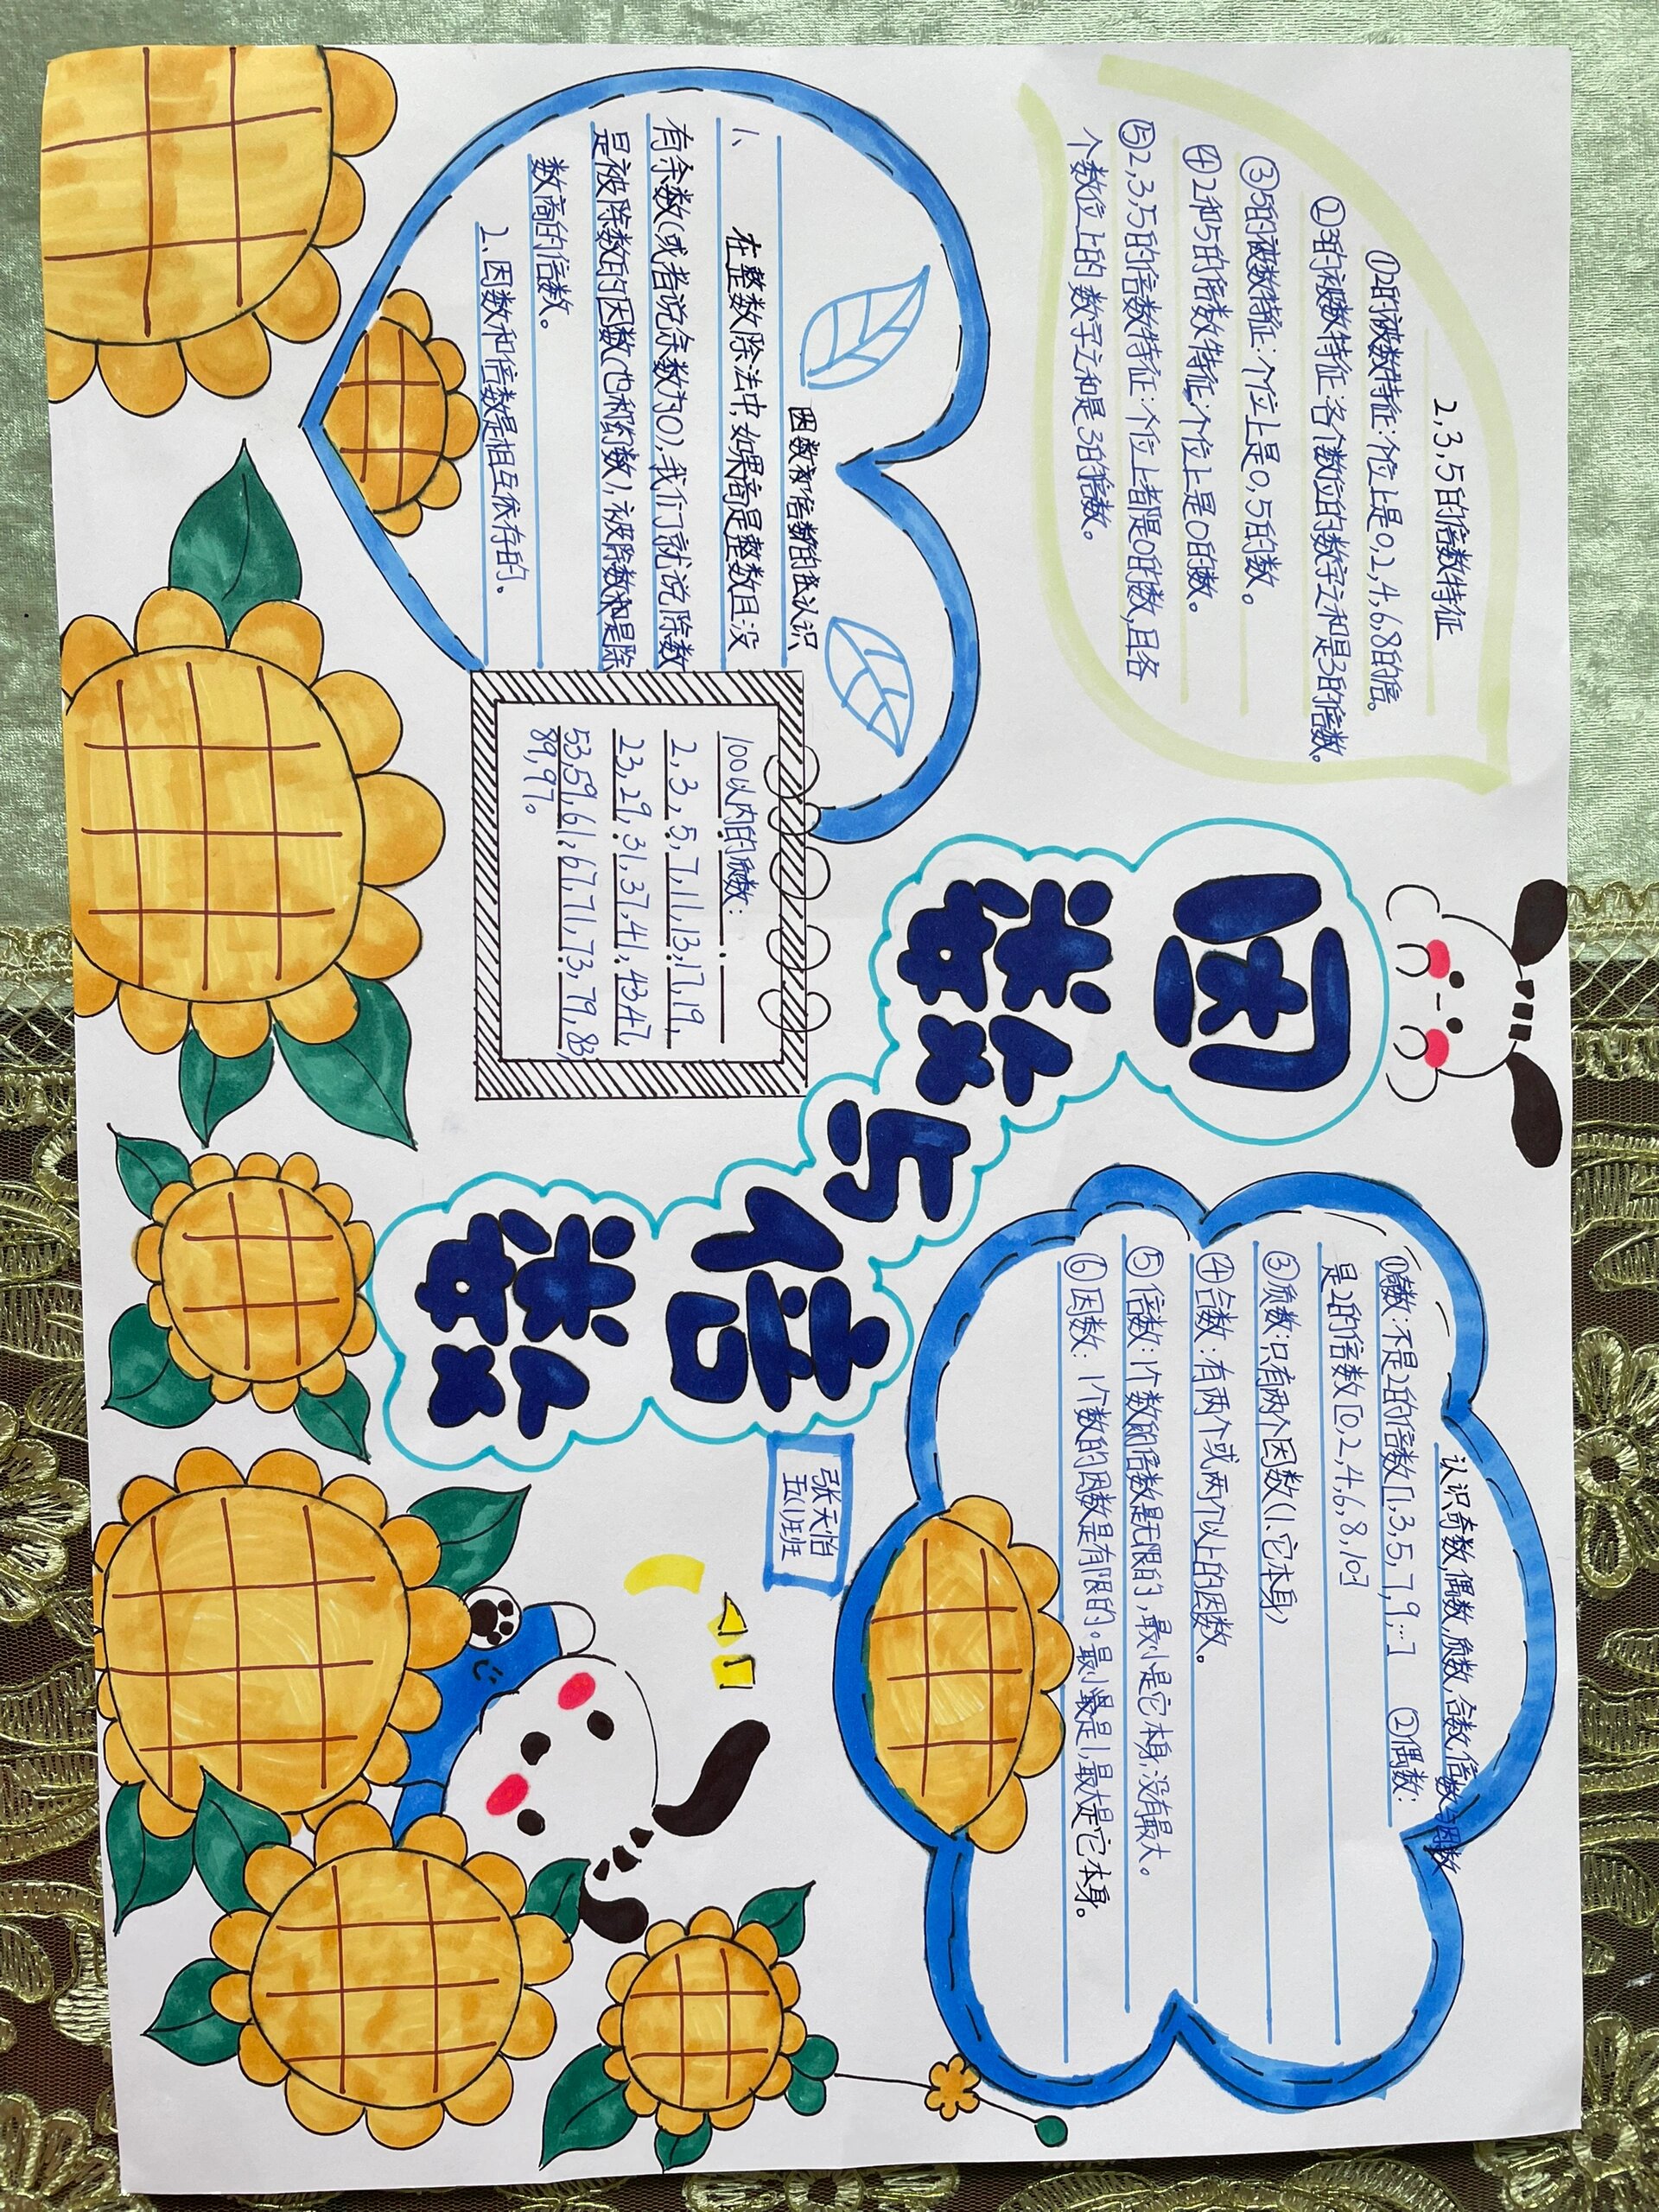 因数与倍数
2,3,5的倍数特征
①2的被数特征:个位上是0,2,4,6,8的倍。
②3的被数特征:各个数位的数字之和是3的倍数。
③5的被数特征:个位上是0,5的数。
④2和5的倍数特征:个位上是0的数。
⑤2,3,5的倍数特征:个位上都是0的数,且各
个数位上的数字之和是3的倍数。
因数和倍数的认识
1、在整数除法中,如果商是整数且没
有余数(或者说余数为0),我们就说除数
是被除数的因数(也称约数),被除数和是除
数商的倍数。
2.因数和倍数是相互依存的。
100以内的质数:
2,3,5,7,11,13,17,19,
23,29,31,37,41,43,47,
53,59,61,67,71,73,79,83,
89,97。
认识奇数,偶数,质数,合数,倍数与因数
①奇数:不是2的倍数[1,3,5,7,9…] ②偶数:
是2的倍数[0,2,4,6,8,10]
③质数:只有两个因数(1、它本身)
④合数:有两个或两个以上的因数。
⑤倍数:1个数的倍数是无限的,最小是它本身,没有最大。
⑥因数:1个数的因数是有限的。最小最是1,最大是它本身。
张天怡
五(1)班